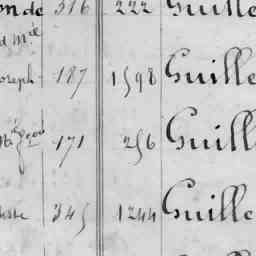 onde 316 222 Guille
d mie
oseph 187 1598 Guille
171 256 Guill
345 1244 Guille